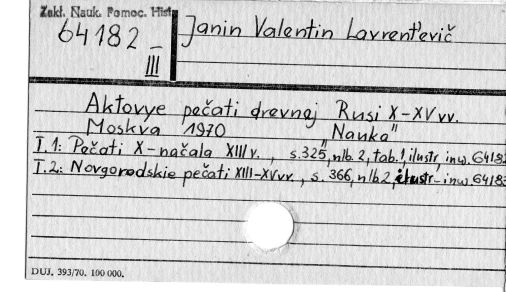 Zakł. Nauk. Pomoc. Hist.
64182
III
Janin Valentin Lavrent'evič
Aktovye pečati drevnej Rusi X-XV vv.
Moskva 1970 "Nauka"
T.1: Pečati X-načala XIII v., s.325, nlb.2, tab.1, ilustr, inw.64182
T.2: Novgorodskie pečati XIII-XV vv., s. 366, nlb 2, ilustr. inw.64183
DUJ. 393/70. 100 000.